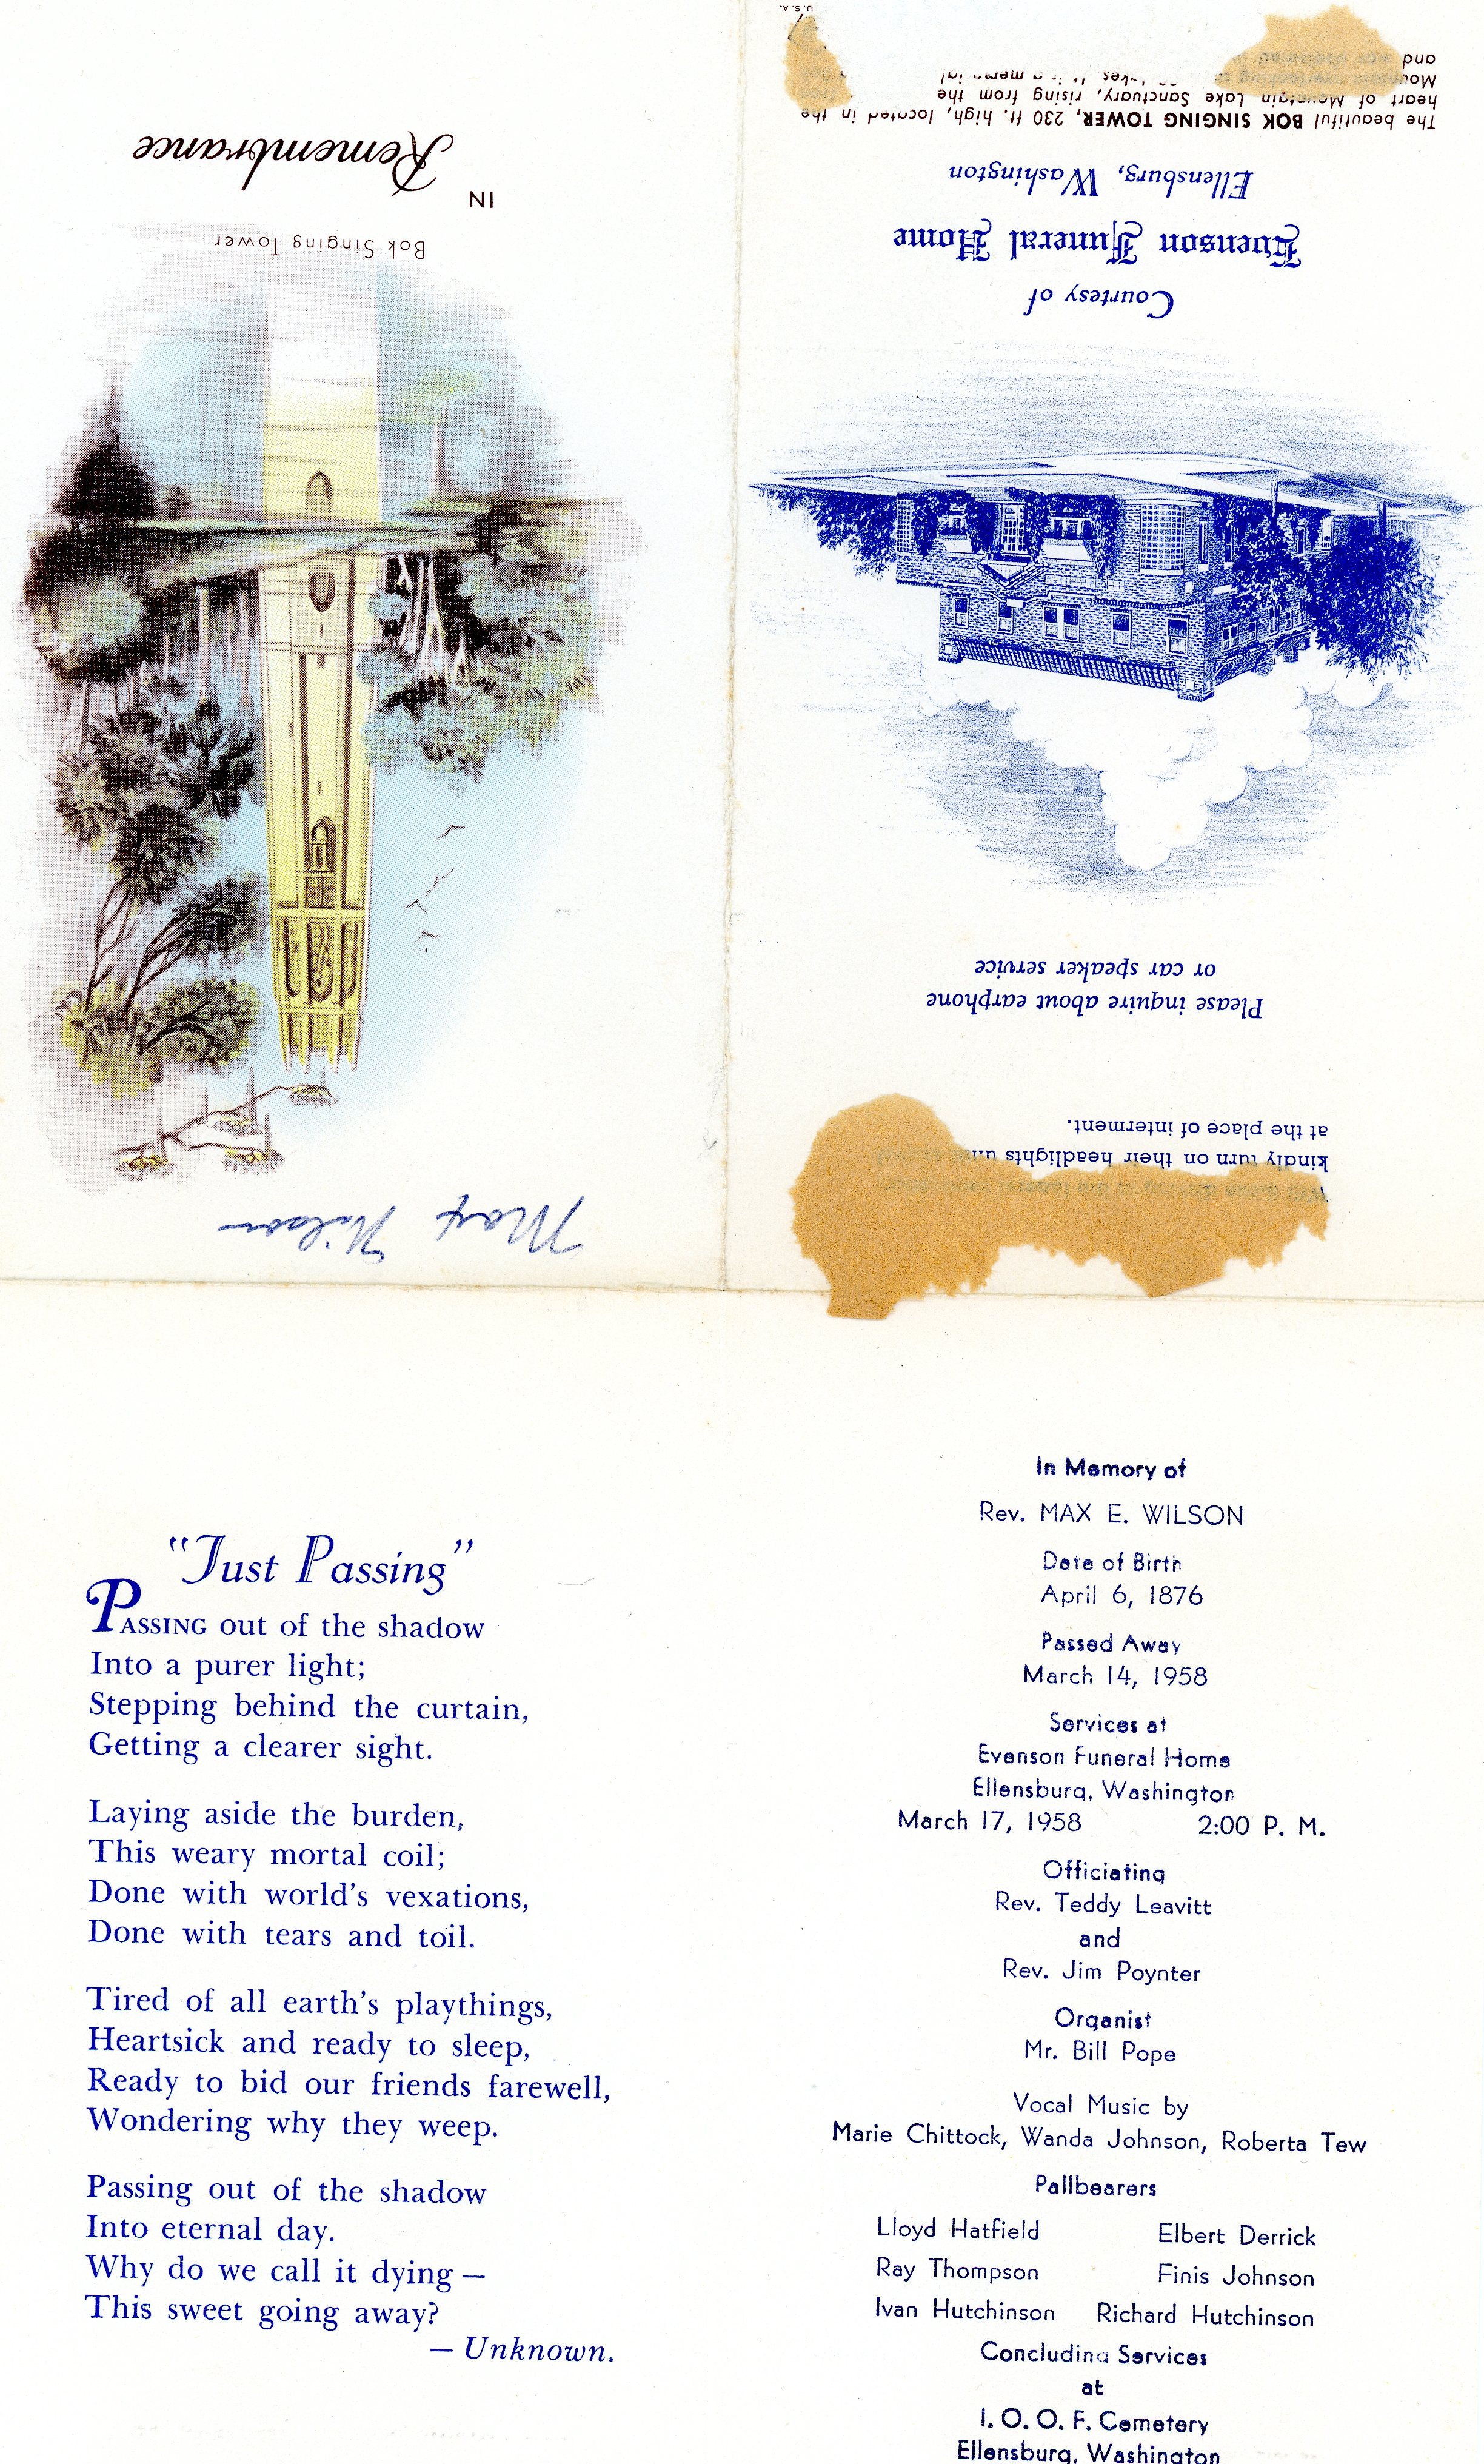 Max Wilson
Bok Singing Tower
IN
Remembrance
kindly turn on their headlights
at the place of interment.
Please inquire about earphone
or car speaker service
Courtesy of
Evenson Funeral Home
Ellensburg, Washington
The beautiful BOK SINGING TOWER, 230 ft. high, located in the
heart of Mountain Lake Sanctuary, rising from the
and
U.S.A.
"Just Passing"
PASSING out of the shadow
Into a purer light;
Stepping behind the curtain,
Getting a clearer sight.
Laying aside the burden,
This weary mortal coil;
Done with world's vexations,
Done with tears and toil.
Tired of all earth's playthings,
Heartsick and ready to sleep,
Ready to bid our friends farewell,
Wondering why they weep.
Passing out of the shadow
Into eternal day.
Why do we call it dying —
This sweet going away?
— Unknown.
In Memory of
Rev. MAX E. WILSON
Date of Birth
April 6, 1876
Passed Away
March 14, 1958
Services at
Evenson Funeral Home
Ellensburg, Washington
March 17, 1958 2:00 P. M.
Officiating
Rev. Teddy Leavitt
and
Rev. Jim Poynter
Organist
Mr. Bill Pope
Vocal Music by
Marie Chittock, Wanda Johnson, Roberta Tew
Pallbearers
Lloyd Hatfield Elbert Derrick
Ray Thompson Finis Johnson
Ivan Hutchinson Richard Hutchinson
Concluding Services
at
I. O. O. F. Cemetery
Ellensburg, Washington